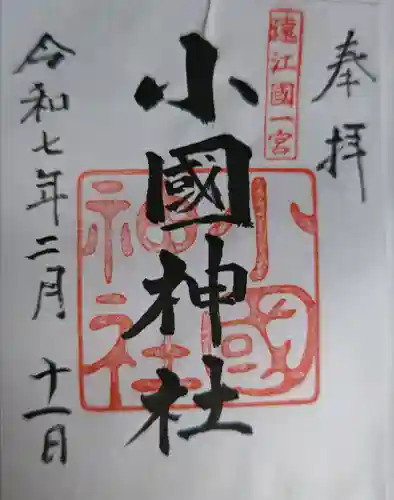 奉拝
遠江國一宮
小國神社
小國神社
令和七年二月十一日